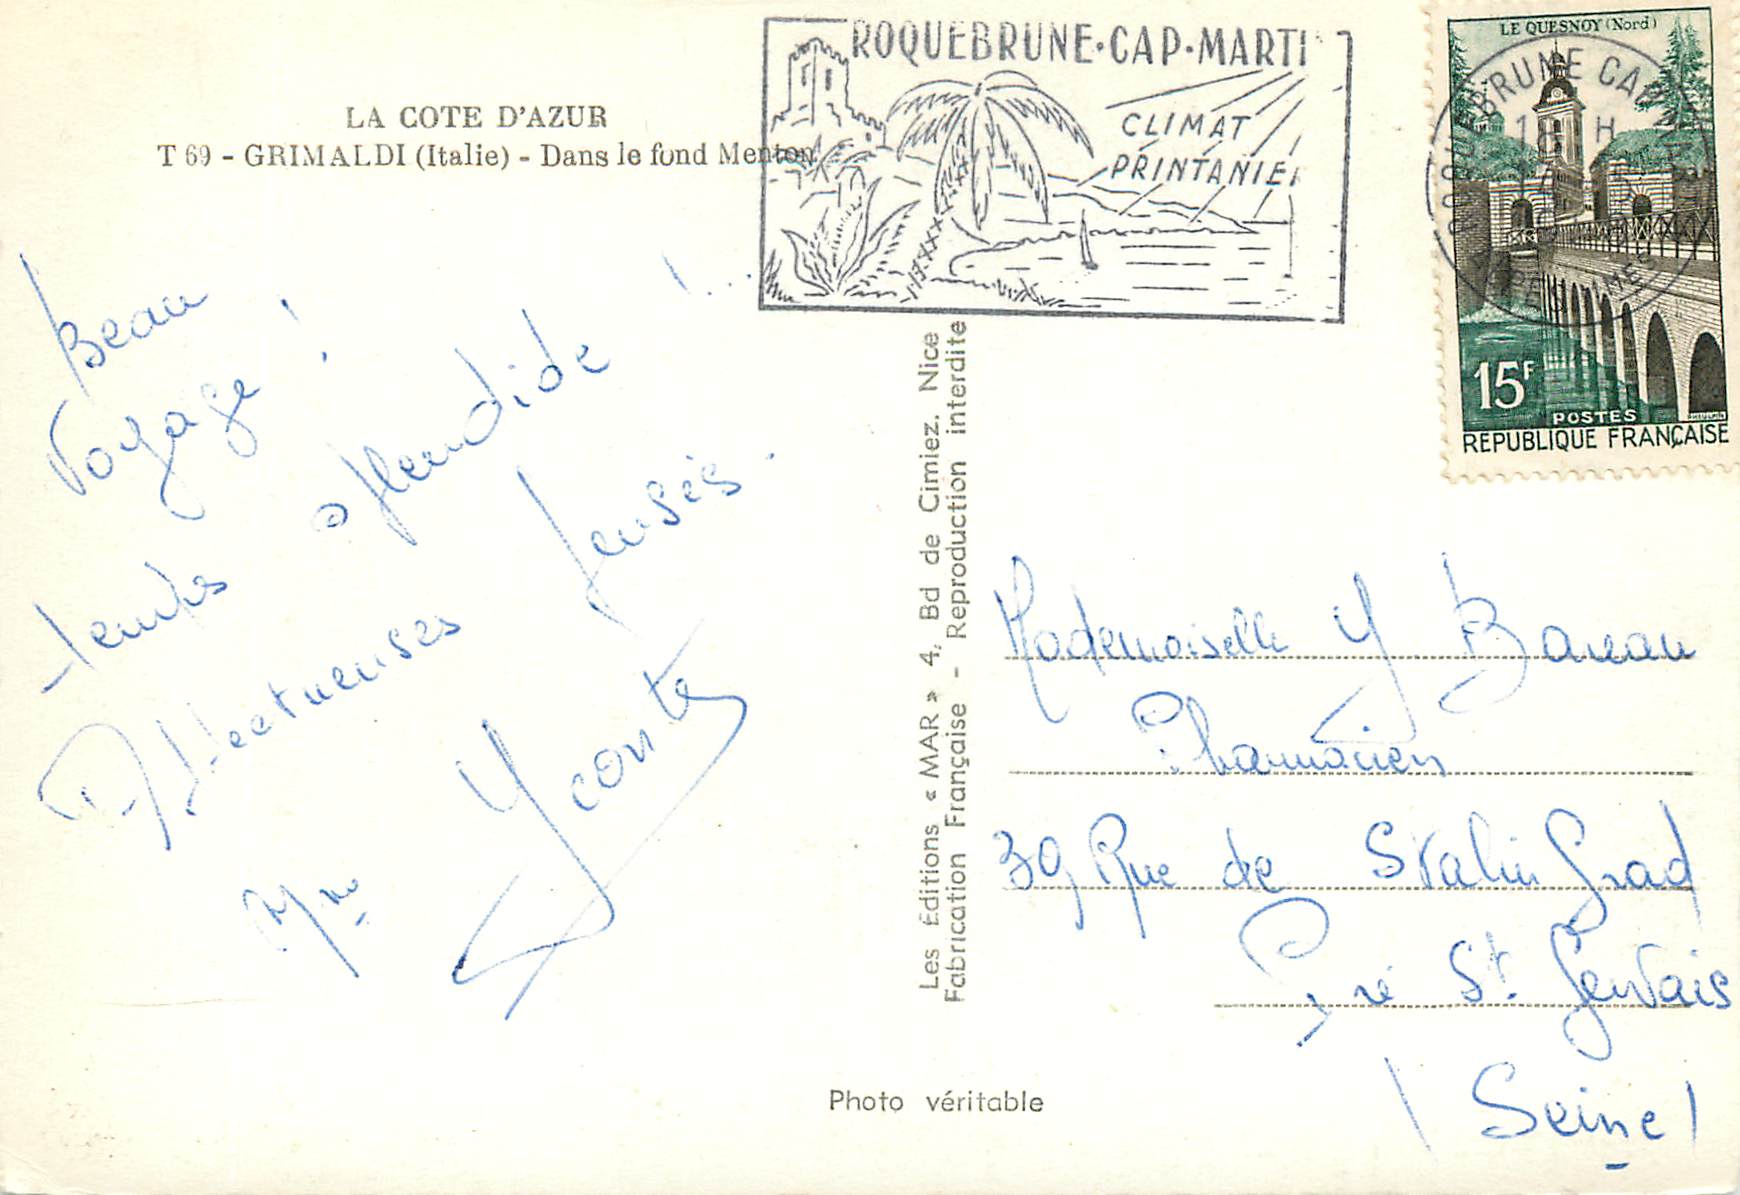 LA COTE D'AZUR
T 69 - GRIMALDI (Italie) - Dans le fond Menton
ROQUEBRUNE•CAP•MARTI
CLIMAT
PRINTANIE
LE QUESNOY (Nord)
ROQUEBRUNE CAP
18 H
15F
POSTES
REPUBLIQUE FRANÇAISE
Beau
Voyage !
temps splendide !...
Affectueuses pensées.
Mme Y conte
Les Éditions « MAR » 4, Bd de Cimiez. Nice
Fabrication Française - Reproduction interdite
Mademoiselle Y Bareau
Pharmacien
39 Rue de Stalingrad
Pré St. Gervais
(Seine)
Photo véritable